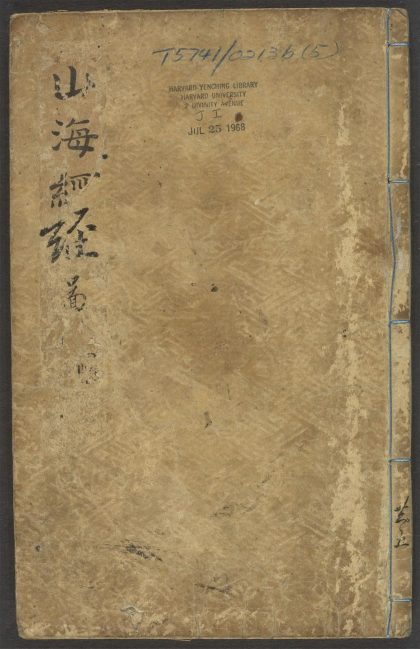 T5741/0213b(5)
HARVARD-YENCHING LIBRARY
HARVARD UNIVERSITY
2 DIVINITY AVENUE
J I
JUL 25 1968
山海經
圖
共五